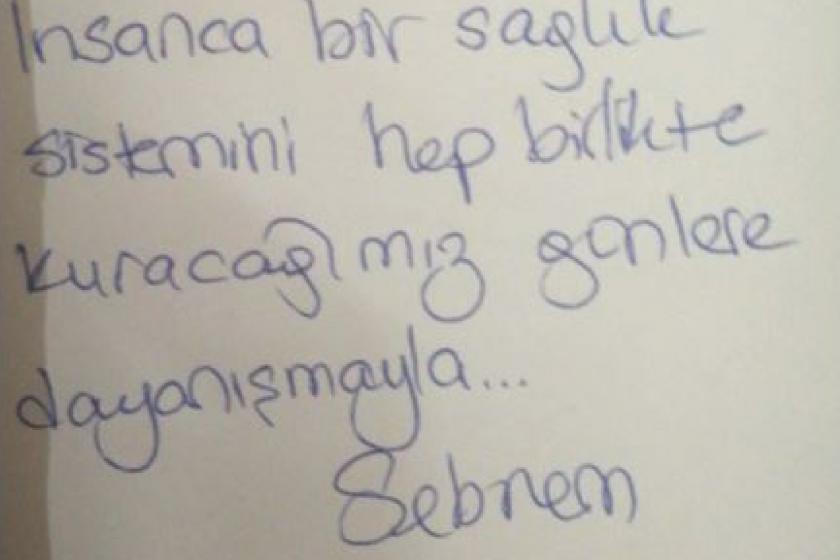 İnsanca bir sağlık
sistemini hep birlikte
kuracağımız günlere
dayanışmayla...
Şebnem